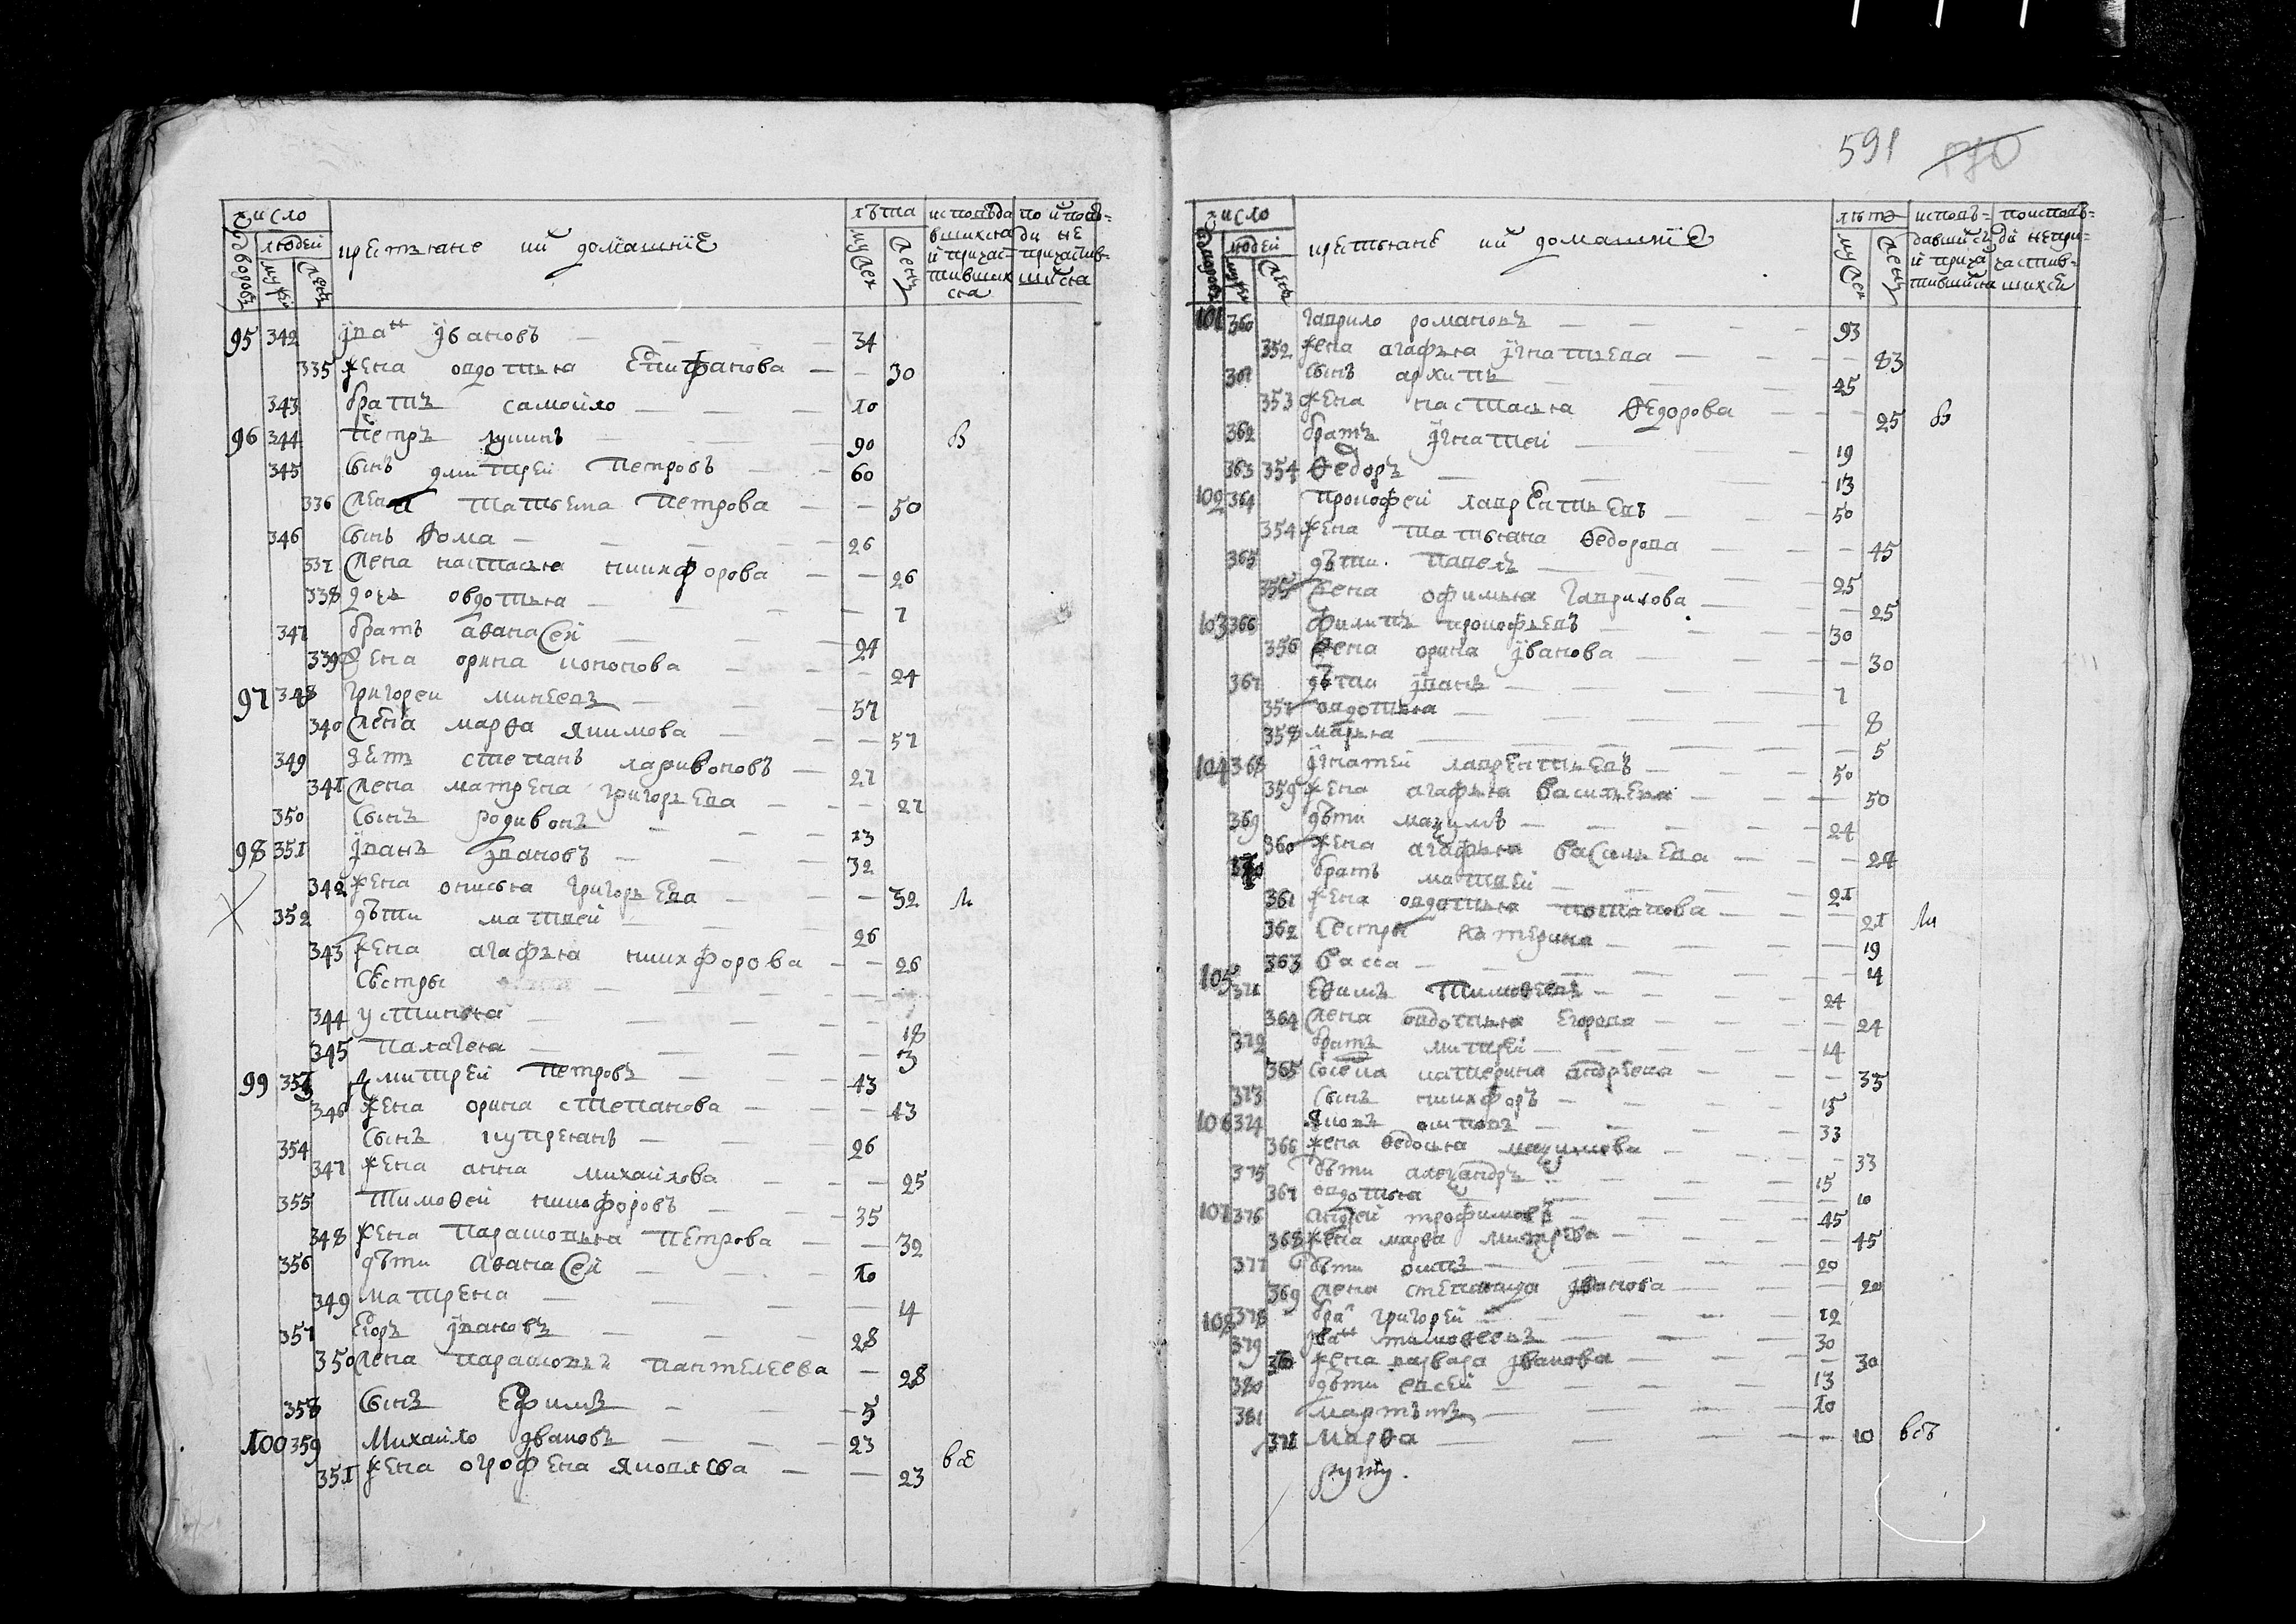 число
дворовъ
людей
муж
жен
крестьяне и ихъ домашние
лѣта
муж
жен
исповѣда
вшихся
и причас-
тивших
ся
по испов-
ди не
причастив-
шихся
95 342 Ива<sup>н</sup> Ивановъ — 34
335 жена овдотья Епифанова — 30
343 братъ самойло — 10
96 344 Петръ лукинъ — 90 В
345 сынъ дмитрей Петровъ — 60
336 жена Татьена Петрова — 50
346 сынъ Ѳома — 26
337 жена настасья никифорова — 26
338 дочь овдотья — 7
347 братъ аѳанасей — 24
339 жена орина кононова — 24
97 348 григореи минеевъ — 57
340 жена марѳа якимова — 57
349 зять степанъ ларивоновъ — 27
341 жена матрена григорьева — 27
350 сынъ родивонъ — 13
98 351 Иванъ Ивановъ — 32
342 жена онисья григорьева — 32 Л
352 дѣти матвей — 26
343 жена агафья никифорова — 26
сестры —
344 устинья — 18
345 палагея — 3
99 353 дмитрей Петровъ — 43
346 жена орина степанова — 43
354 сынъ купреянъ — 26
347 жена анна михайлова — 25
355 Тимоѳей никифоровъ — 35
348 жена парасковья Петрова — 32
356 дѣти аѳанасей — 10
349 матрена — 4
357 Егоръ Ивановъ — 28
350 жена парасковья пантелеева — 28
358 сынъ Ефимъ — 5
100 359 Михайло Ивановъ — 23
351 жена огрофена яковлева — 23 все
591 590
число
дворовъ
людей
муж
жен
крестьяне и ихъ домашние
лѣта
муж
жен
исповѣ-
давшихся
и прича
тившихся
по исповѣ-
ди непри-
частив-
шихся
101 360 гаврило романовъ — 93
352 жена агафья Игнатьева — 83
361 сынъ архипъ — 25
353 жена настасья Ѳедорова — 25 В
362 братъ Игнатей — 19
363 354 Ѳедоръ — 13
102 364 прокофей лаврентьевъ — 50
354 жена татьяна Ѳедорова — 45
365 дѣти павелъ — 25
355 жена офимья гаврилова — 25
103 366 филипъ прокофьевъ — 30
356 жена орина Иванова — 30
367 дѣти Иванъ — 7
357 овдотья — 8
358 марья — 5
104 368 Игнатей лаврентьевъ — 50
359 жена агафья васильева — 50
369 дѣти маѯимъ — 24
360 жена агафья васильева — 24
370 братъ матвей — 21
361 жена овдотья потапова — 21 Ли
362 сестры катерина — 19
363 васса — 14
105 371 Ефимъ Тимоѳеевъ — 24
364 жена овдотья Егорова — 24
372 братъ митрей — 14
365 катерина андреева — 35
373 сынъ никифоръ — 15
106 374 яковъ — 33
366 жена Ѳедосья маѯимова — 33
375 дѣти алеѯандръ — 15
367 овдотья — 10
107 376 андрей трофимовъ — 45
368 жена марѳа митрева — 45
377 дѣти осипъ — 20
369 жена степанида Иванова — 20
378 бра<sup>т</sup> григорей — 12
108 379 Ива<sup>н</sup> тимоѳеевъ — 30
370 жена варвара Иванова — 30
380 дѣти евсей — 13
381 — 10
371 марѳа — 10 всѣ
руку.